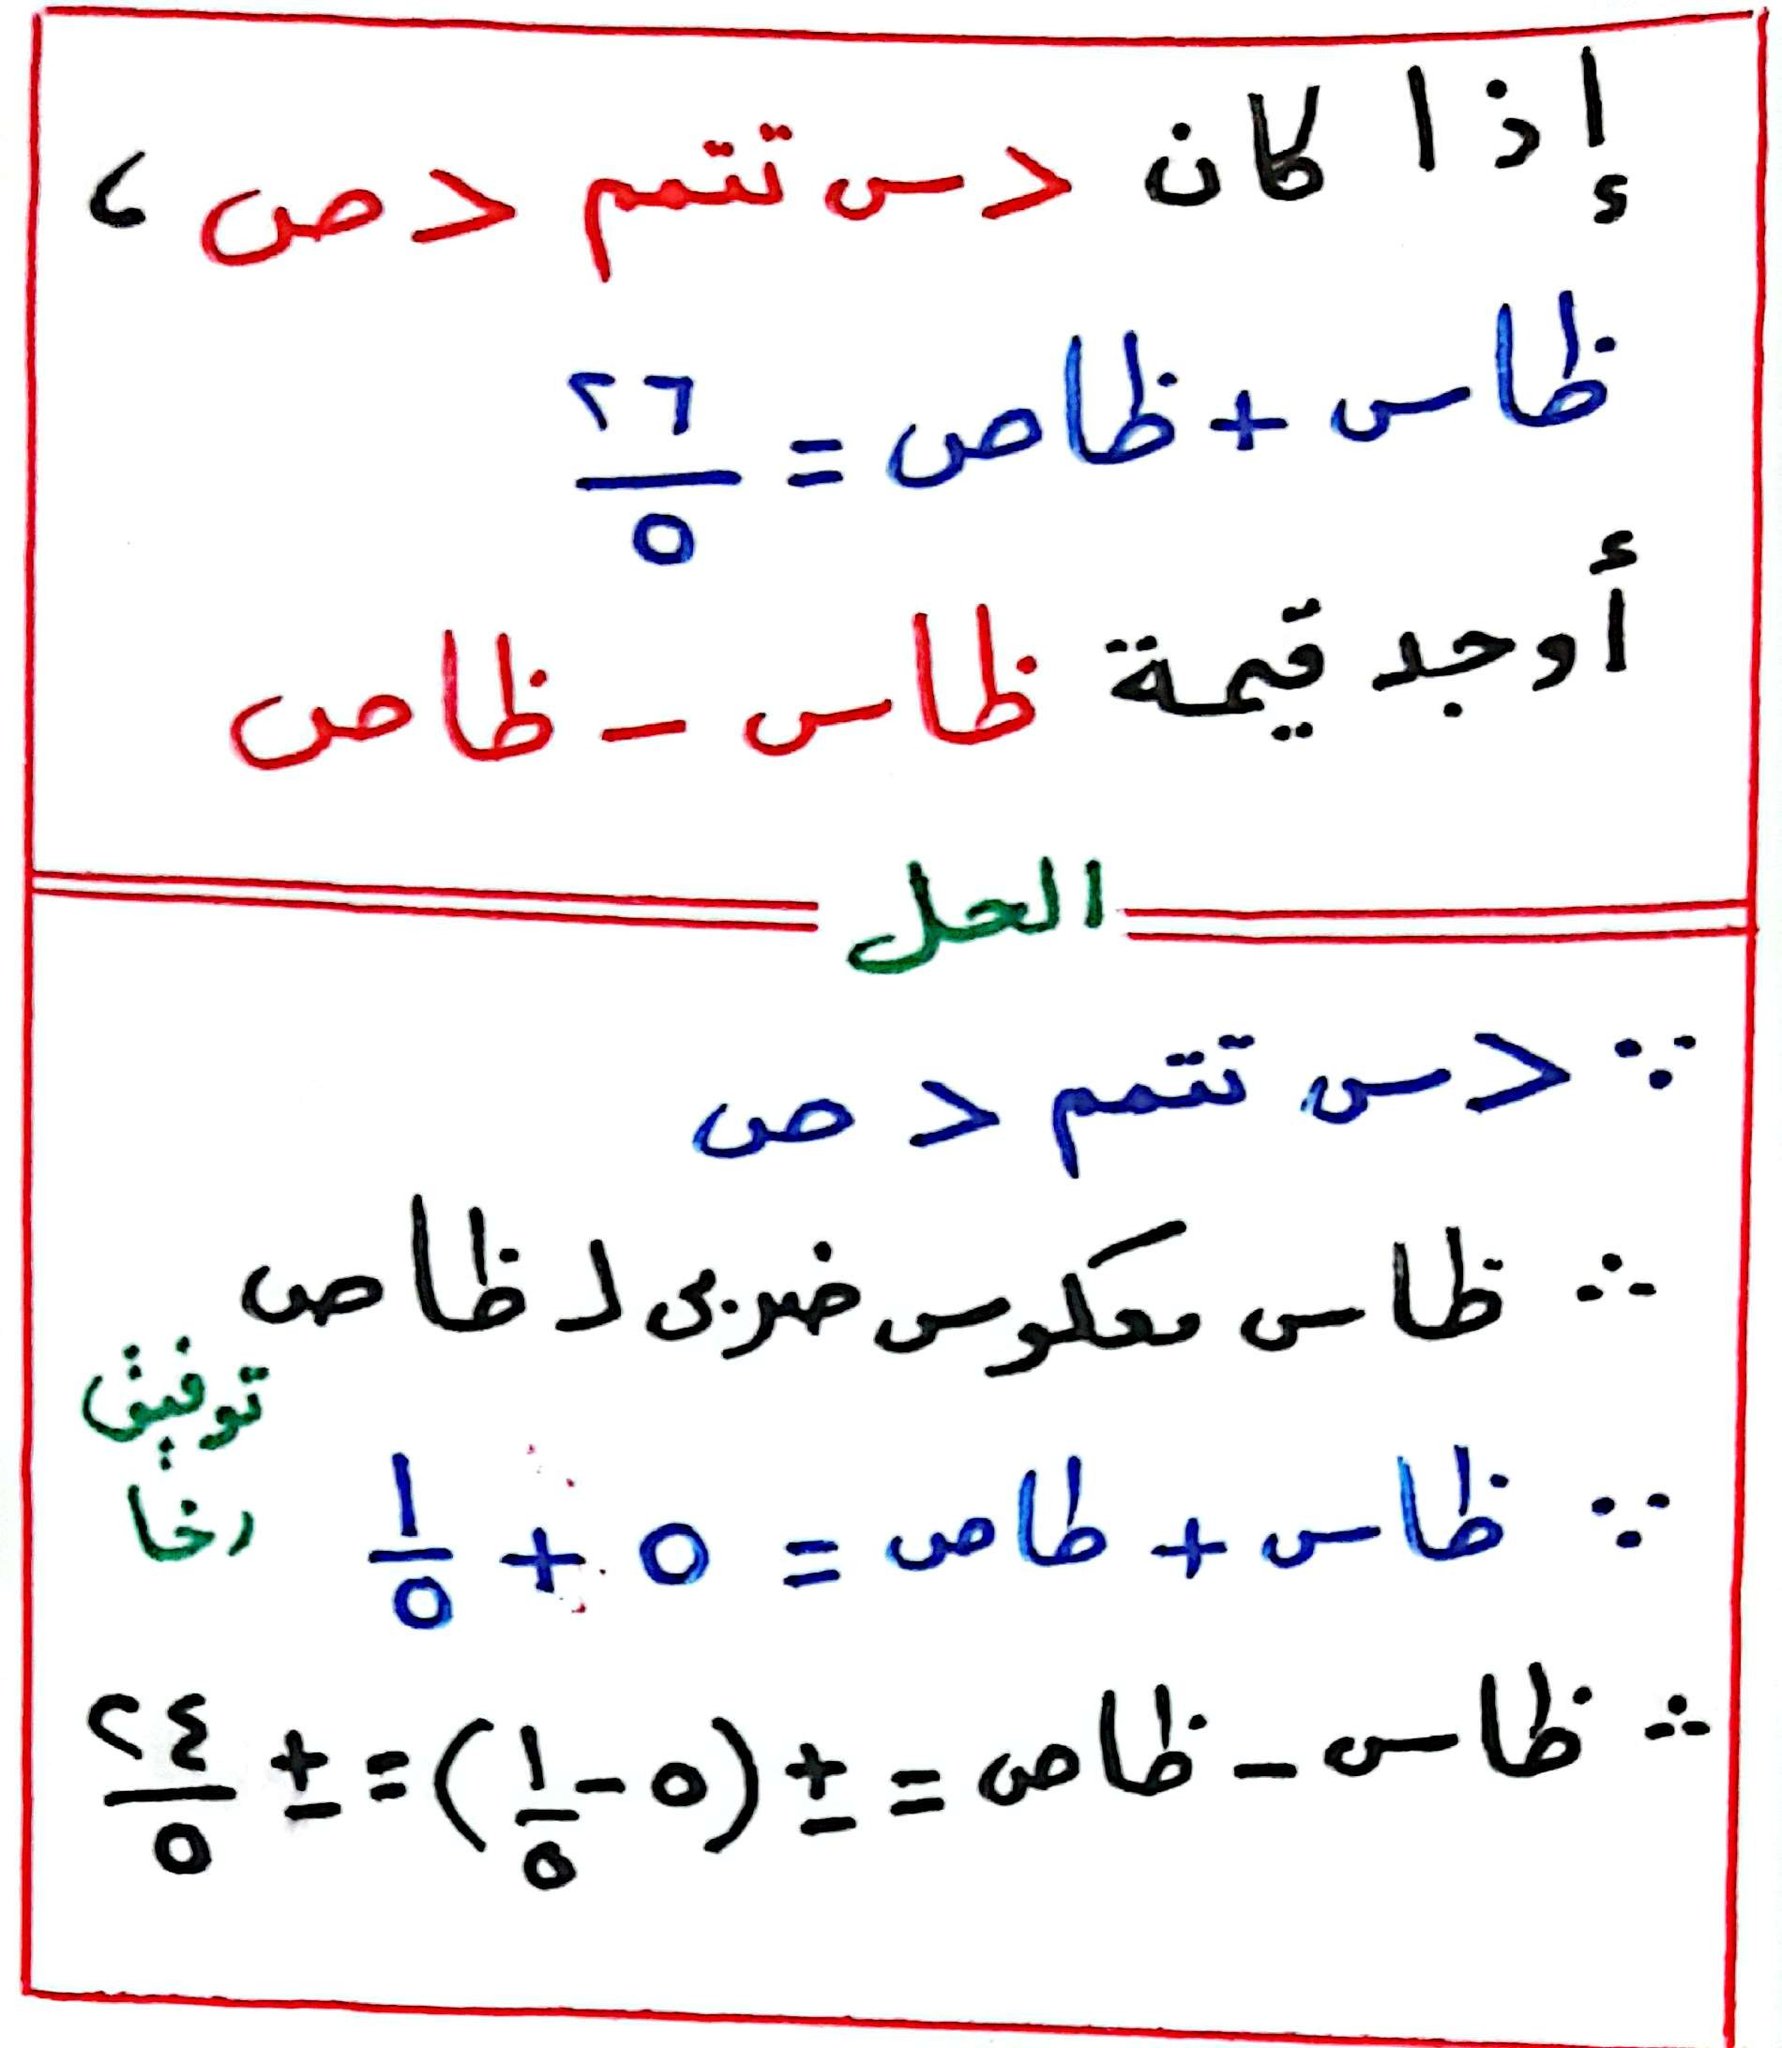 إذا كان د س تتمم د ص ،
ظا س + ظا ص = ٢٦/٥
أوجد قيمة ظا س - ظا ص
الحل
∵ د س تتمم د ص
∴ ظا س معكوس ضربى لـ ظا ص
توفيق
رخا
∵ ظا س + طا ص = ٥ + ١/٥
∴ ظا س - ظا ص = ± (٥ - ١/٥) = ± ٢٤/٥